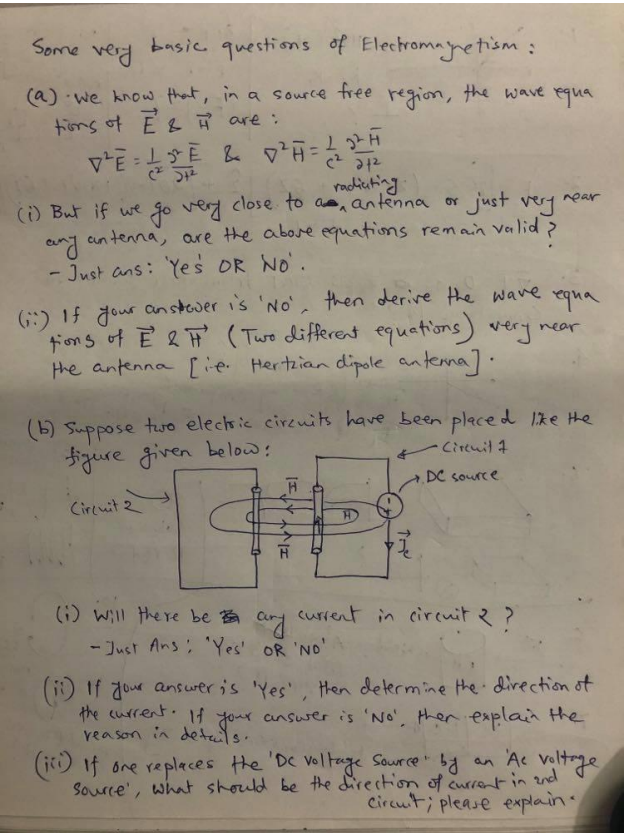 Some very basic questions of Electromagnetism :
(a) We know that, in a source free region, the wave equa
tions of E⃗ & H⃗ are :
∇²E̅ = 1/c² ∂²E̅/∂t² & ∇²H̅ = 1/c² ∂²H̅/∂t²
(i) But if we go very close to a radiating antenna or just very near
any antenna, are the above equations remain valid ?
- Just ans : 'Yes' OR 'NO'.
(ii) If your answer is 'NO', then derive the wave equa
tions of E⃗ & H⃗ (Two different equations) very near
the antenna [i.e. Hertzian dipole antenna].
(b) Suppose two electric circuits have been placed like the
figure given below :
Circuit 1
DC source
H̅
Circuit 2
H
I⃗c
H̅
(i) Will there be any current in circuit 2 ?
- Just Ans : 'Yes' OR 'NO'
(ii) If your answer is 'Yes', then determine the direction of
the current. If your answer is 'NO', then explain the
reason in details.
(iii) If one replaces the 'DC voltage source' by an 'AC voltage
source', what should be the direction of current in 2nd
circuit; please explain.